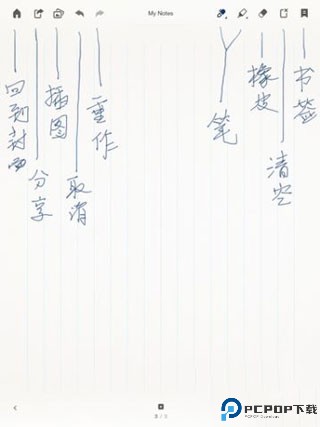 My Notes
回到封面
分享
插图
取消
重作
笔
橡皮
清空
书签
PCPOP下载